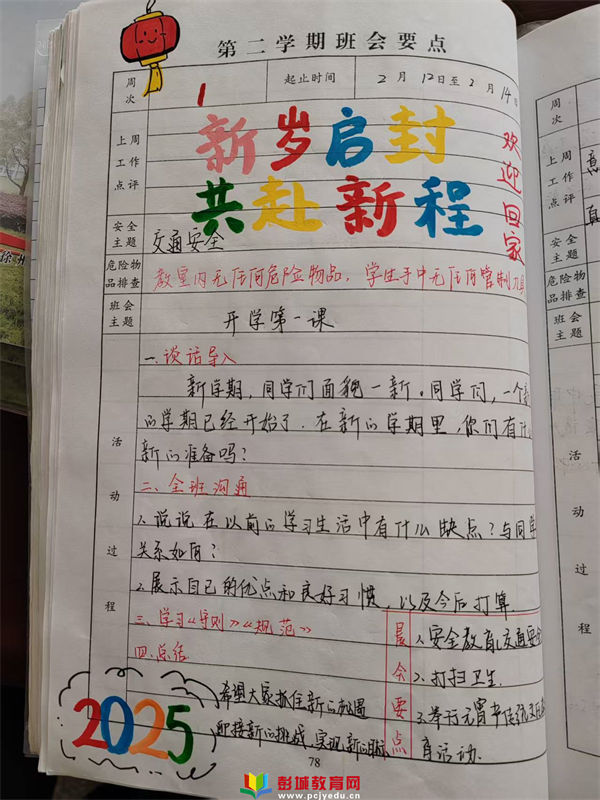 第二学期班会要点
周次
1
起止时间
2月12日至2月14日
上周工作点评
新岁启封
共赴新程
欢迎回家
安全主题
交通安全
危险物品排查
教室内无任何危险物品，学生手中无任何管制刀具
班会主题
开学第一课
活动过程
一、谈话导入
新学期，同学们面貌一新。同学们，一个新
的学期已经开始了，在新的学期里，你们有什
新的准备吗？
二、全班沟通
1、说说在以前的学习生活中有什么缺点？与同学
关系如何？
2、展示自己的优点和良好习惯，以及今后打算
三、学习《守则》《规范》
四、总结
希望大家抓住新的机遇
迎接新的挑战，实现新的目标
晨会要点
1、安全教育，交通安全
2、打扫卫生
3、举行元宵节传统
育活动.
2025
78
周次
上周工作点评
安全主题
危险物品排查
班会主题
活动过程
彭城教育网
www.pcjyedu.cn